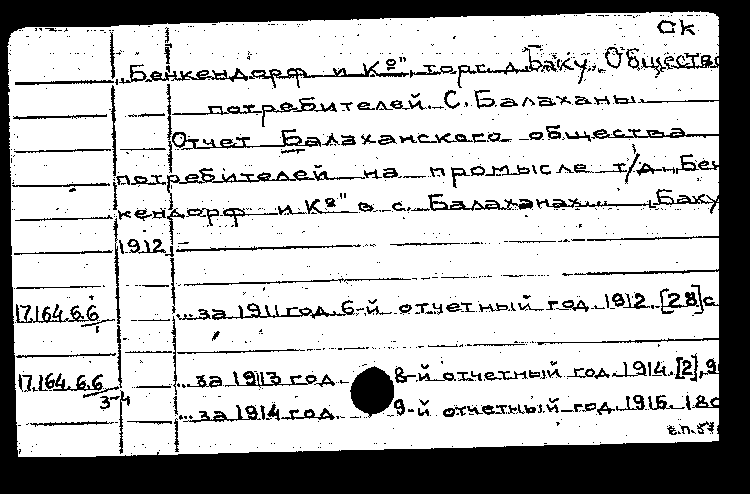 Ск
„Бенкендорф и Кº", торг. д. Баку. Общество
потребителей. С. Балаханы.
Отчет Балаханского общества
потребителей на промысле т/д „Бен-
кендорф и Кº" в с. Балаханах... Баку
1912 –
17.164.6.6 ...за 1911 год. 6-й отчетный год. 1912. [28] с
1
17.164.6.6 ...за 1913 год. 8-й отчетный год. 1914. [2], 9
3-4 ...за 1914 год. 9-й отчетный год. 1915. 18 с
в.п. 57